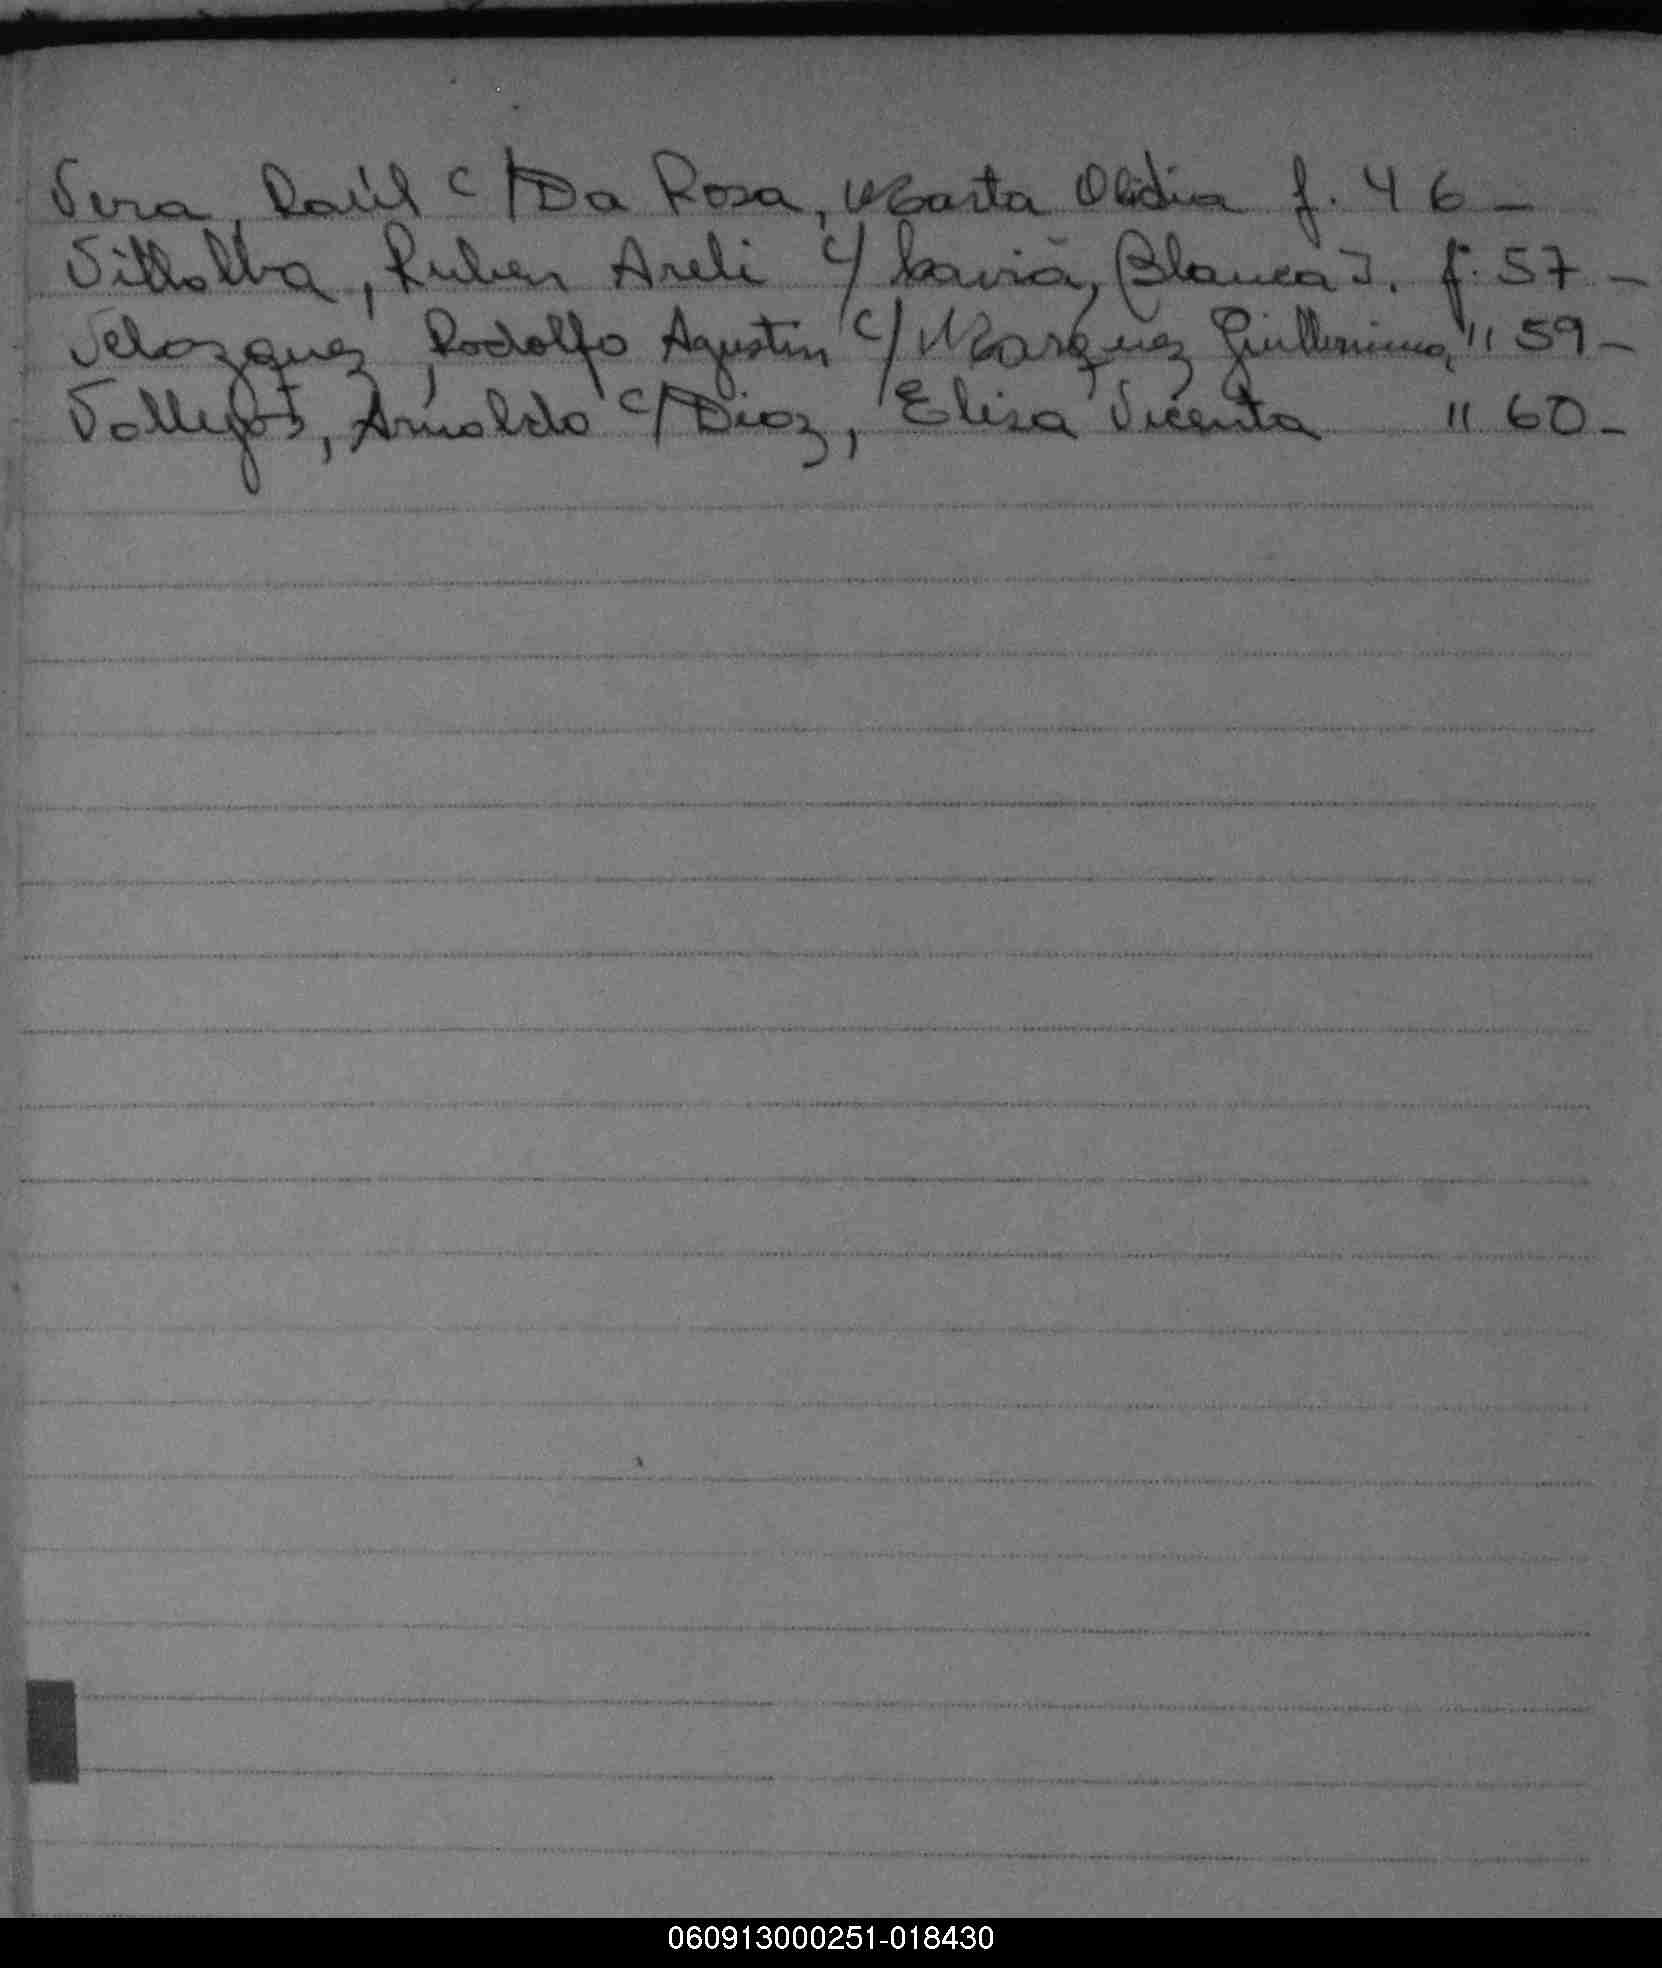 Vera, Raúl c/ Da Rosa, Marta Olidia f. 46 -
Villalba, Ruben Areli c/ Blanca I. f. 57 -
Velazquez, Rodolfo Agustin c/ Marquez Guillermina, " 59 -
Vallejos, Arnaldo c/ Diaz, Elisa Vicenta " 60 -
060913000251-018430